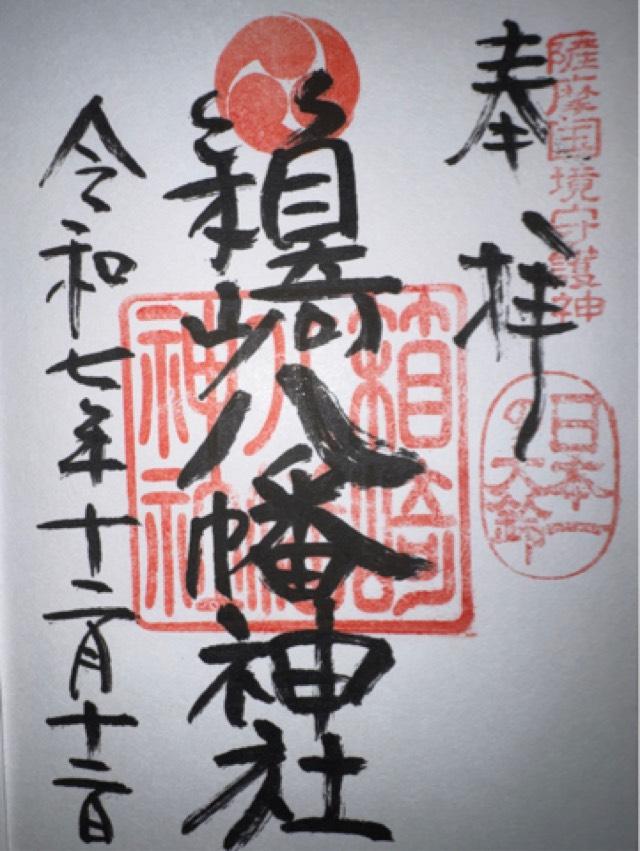 薩摩国境守護神
奉拝
日本一
の大鈴
箱崎八幡神社
箱崎
八幡
神社
令和七年十二月十二日